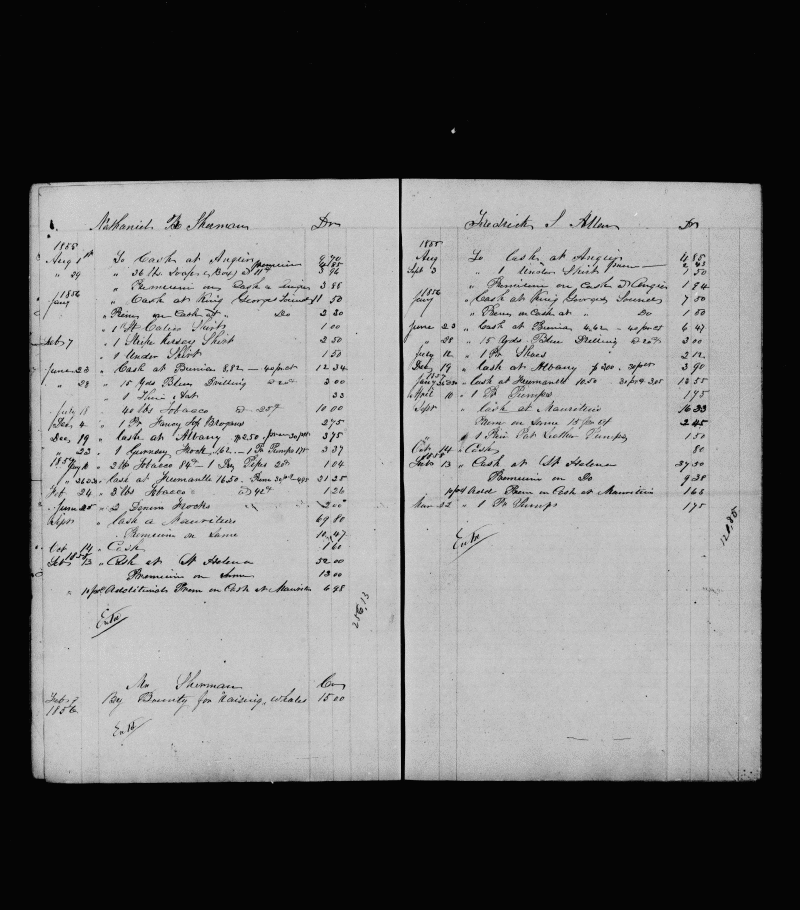 Nathaniel B Sherman Dr
1855
Aug 1st To Cash at Angier 9 70
premium 4 85
" 29 " 36 lbs Soap (Box) @ 11cts 3 96
" Premium on Cash a Angier 3 88
1856
Jany " Cash at King Georges Sound 11 50
" Prem on Cash at " Do 2 30
" 1 St Calico Shirts 1 00
Feb 7 " 1 Stripe Kersey Shirt 2 50
" 1 Under Shirt 1 50
June 23 " Cash at Bunia 8.82 — 40 pr ct 12 34
" 28 " 15 Yds Blue Drilling @ 20cts 3 00
" 1 Hat 33
July 18 " 40 lbs Tobacco @ 25cts 10 00
Dec 4 " 1 Pr Brogans 2 75
Dec 19 " Cash at Albany $2 50 prem 50 pr ct 3 75
" 22 " 1 Gurnsey Frock 1.62 — 1 Pr Pumps 175 3 37
1857
Jany 8 " 2 lbs Tobacco 84cts — 1 Doz Pipes 20cts 1 04
" 26 " Cash at Freemantle 16.50 Prem 30 pr ct 4.95 21 25
Feb 24 " 3 lbs Tobacco @ 42cts 1 26
June 25 " 2 Denim Frocks 2 00
Sept " Cash a Mauritius 69 80
Premium on Same 10 47
Oct 14 " Cash 1 60
1858
Feb 13 " Cash at St Helena 52 00
Premium on Same 13 00
" 10 pr ct Additional Prem on Cash at Mauritius 6 98
256,13
Entd
Mr Sherman Cr
Feb 7 By Bounty for Raising Whales 15 00
1856
Entd
Fredrick S Allen Dr
1855
Aug To Cash at Angier 4 85
prem 2 43
Sept 3 " 1 Under Shirt 1 50
" Premium on Cash at Angier 1 94
1856
Jany " Cash at King Georges Sound 7 50
" Prem on Cash at " Do 1 50
June 23 " Cash at Bunia 4.62 — 40 pr ct 6 47
" 28 " 15 Yds Blue Drilling @ 20cts 3 00
July 12 " 1 Pr Shoes 2 12
Dec 19 " Cash at Albany $2 00 . 30 pr ct 3 90
1857
Jany " Cash at Freemantle 10.50 30 pr ct 3.05 13 55
April 10 " 1 Pr Pumps 1 75
Sept " Cash at Mauritius 16 33
Prem on Same 15 pr ct 2 45
" 1 Pair Pat Leather Pumps 1 50
Oct 14 " Cash 80
1858
Feb 13 " Cash at St Helena 37 50
Premium on Do 9 38
10 pr ct Add Prem on Cash at Mauritius 1 63
Mar 22 " 1 Pr Pumps 1 75
120,85
Entd